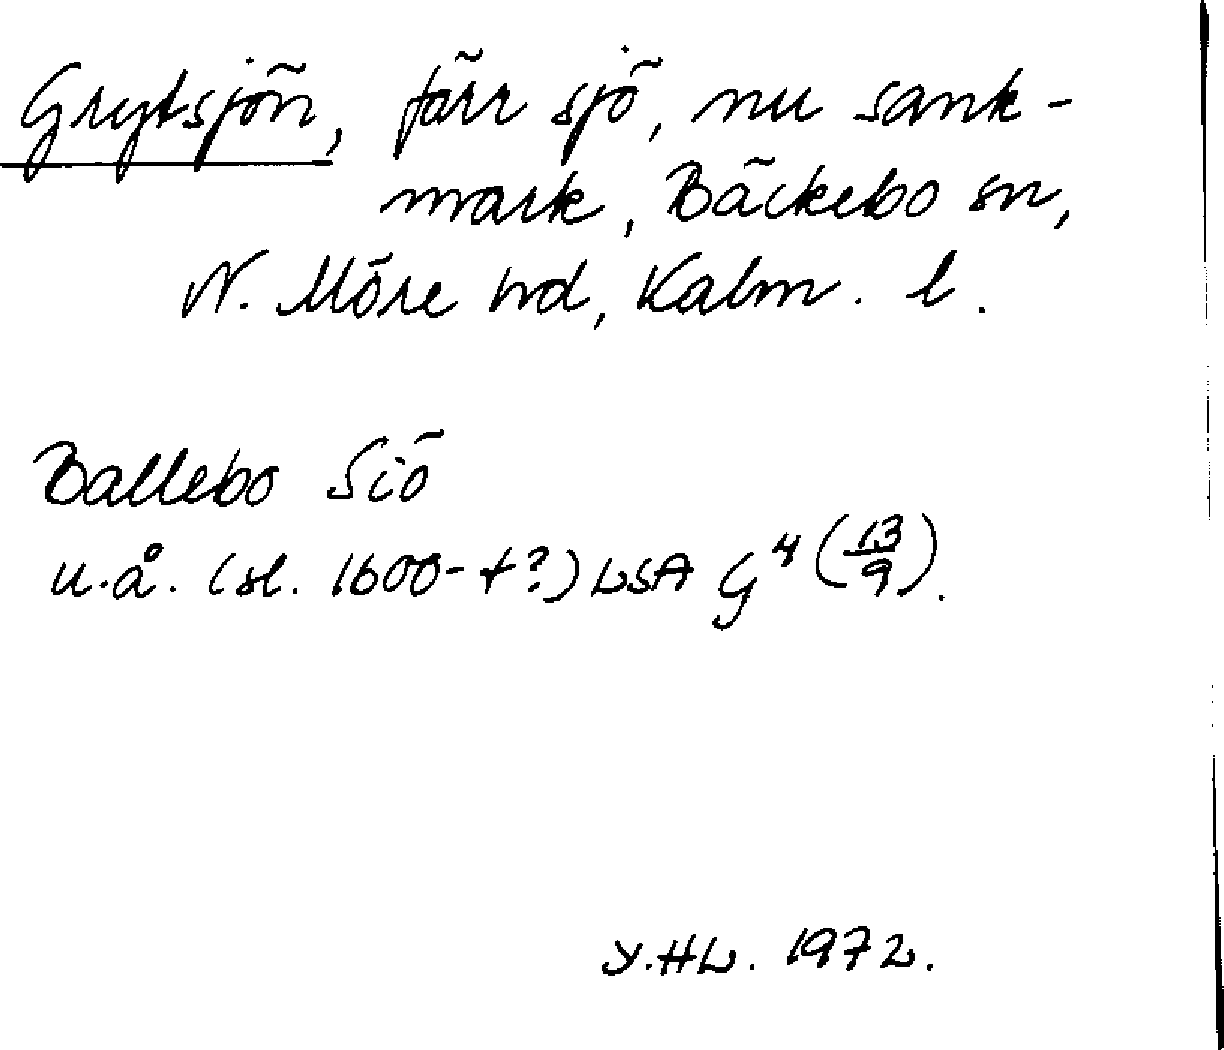 Grytsjön, förr sjö, nu sank-
mark, Bäckebo sn,
N. Möre hd, Kalm. l.
Ballebo Siö
u.å. (sl. 1600-t?) LSA G 4 (13/9).
Y.HL. 1972.